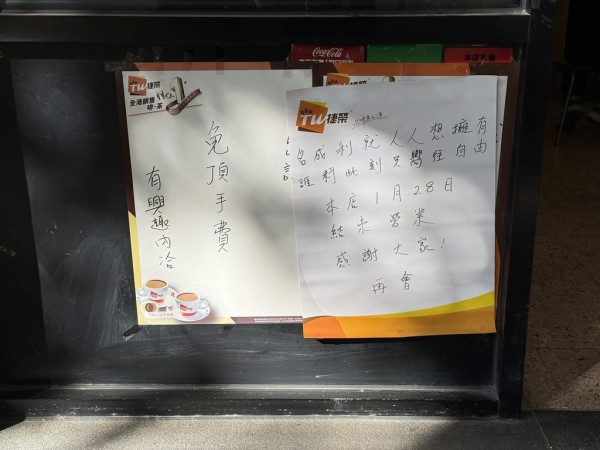 Coca-Cola
TW捷榮
全港銷售
No.1
啡·茶
免頂手費
有興趣內洽
TW捷榮
名成利就人人想擁有
誰料此刻只嚮往自由
本店1月28日
結束營業
感謝大家!
再會